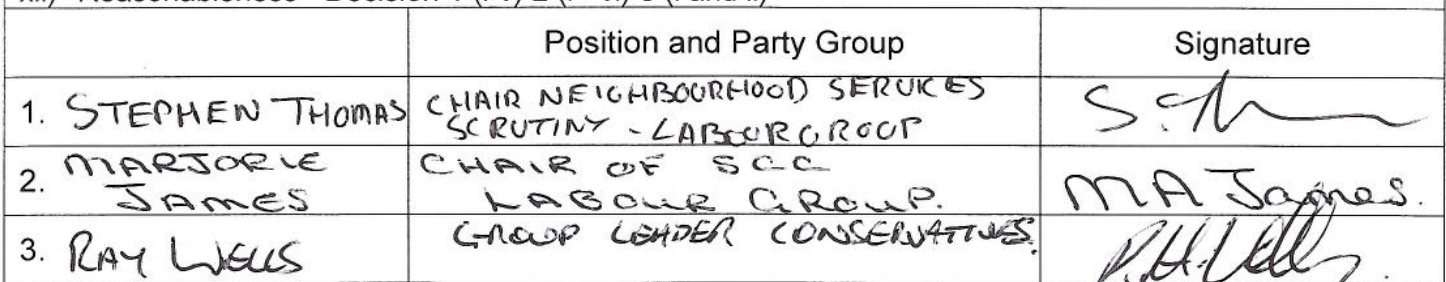 Position and Party Group Signature
1. STEPHEN THOMAS CHAIR NEIGHBOURHOOD SERVICES
SCRUTINY - LABOUR GROUP
2. MARJORIE JAMES CHAIR OF SCC
LABOUR GROUP. MA James.
3. RAY WELLS GROUP LEADER CONSERVATIVES.